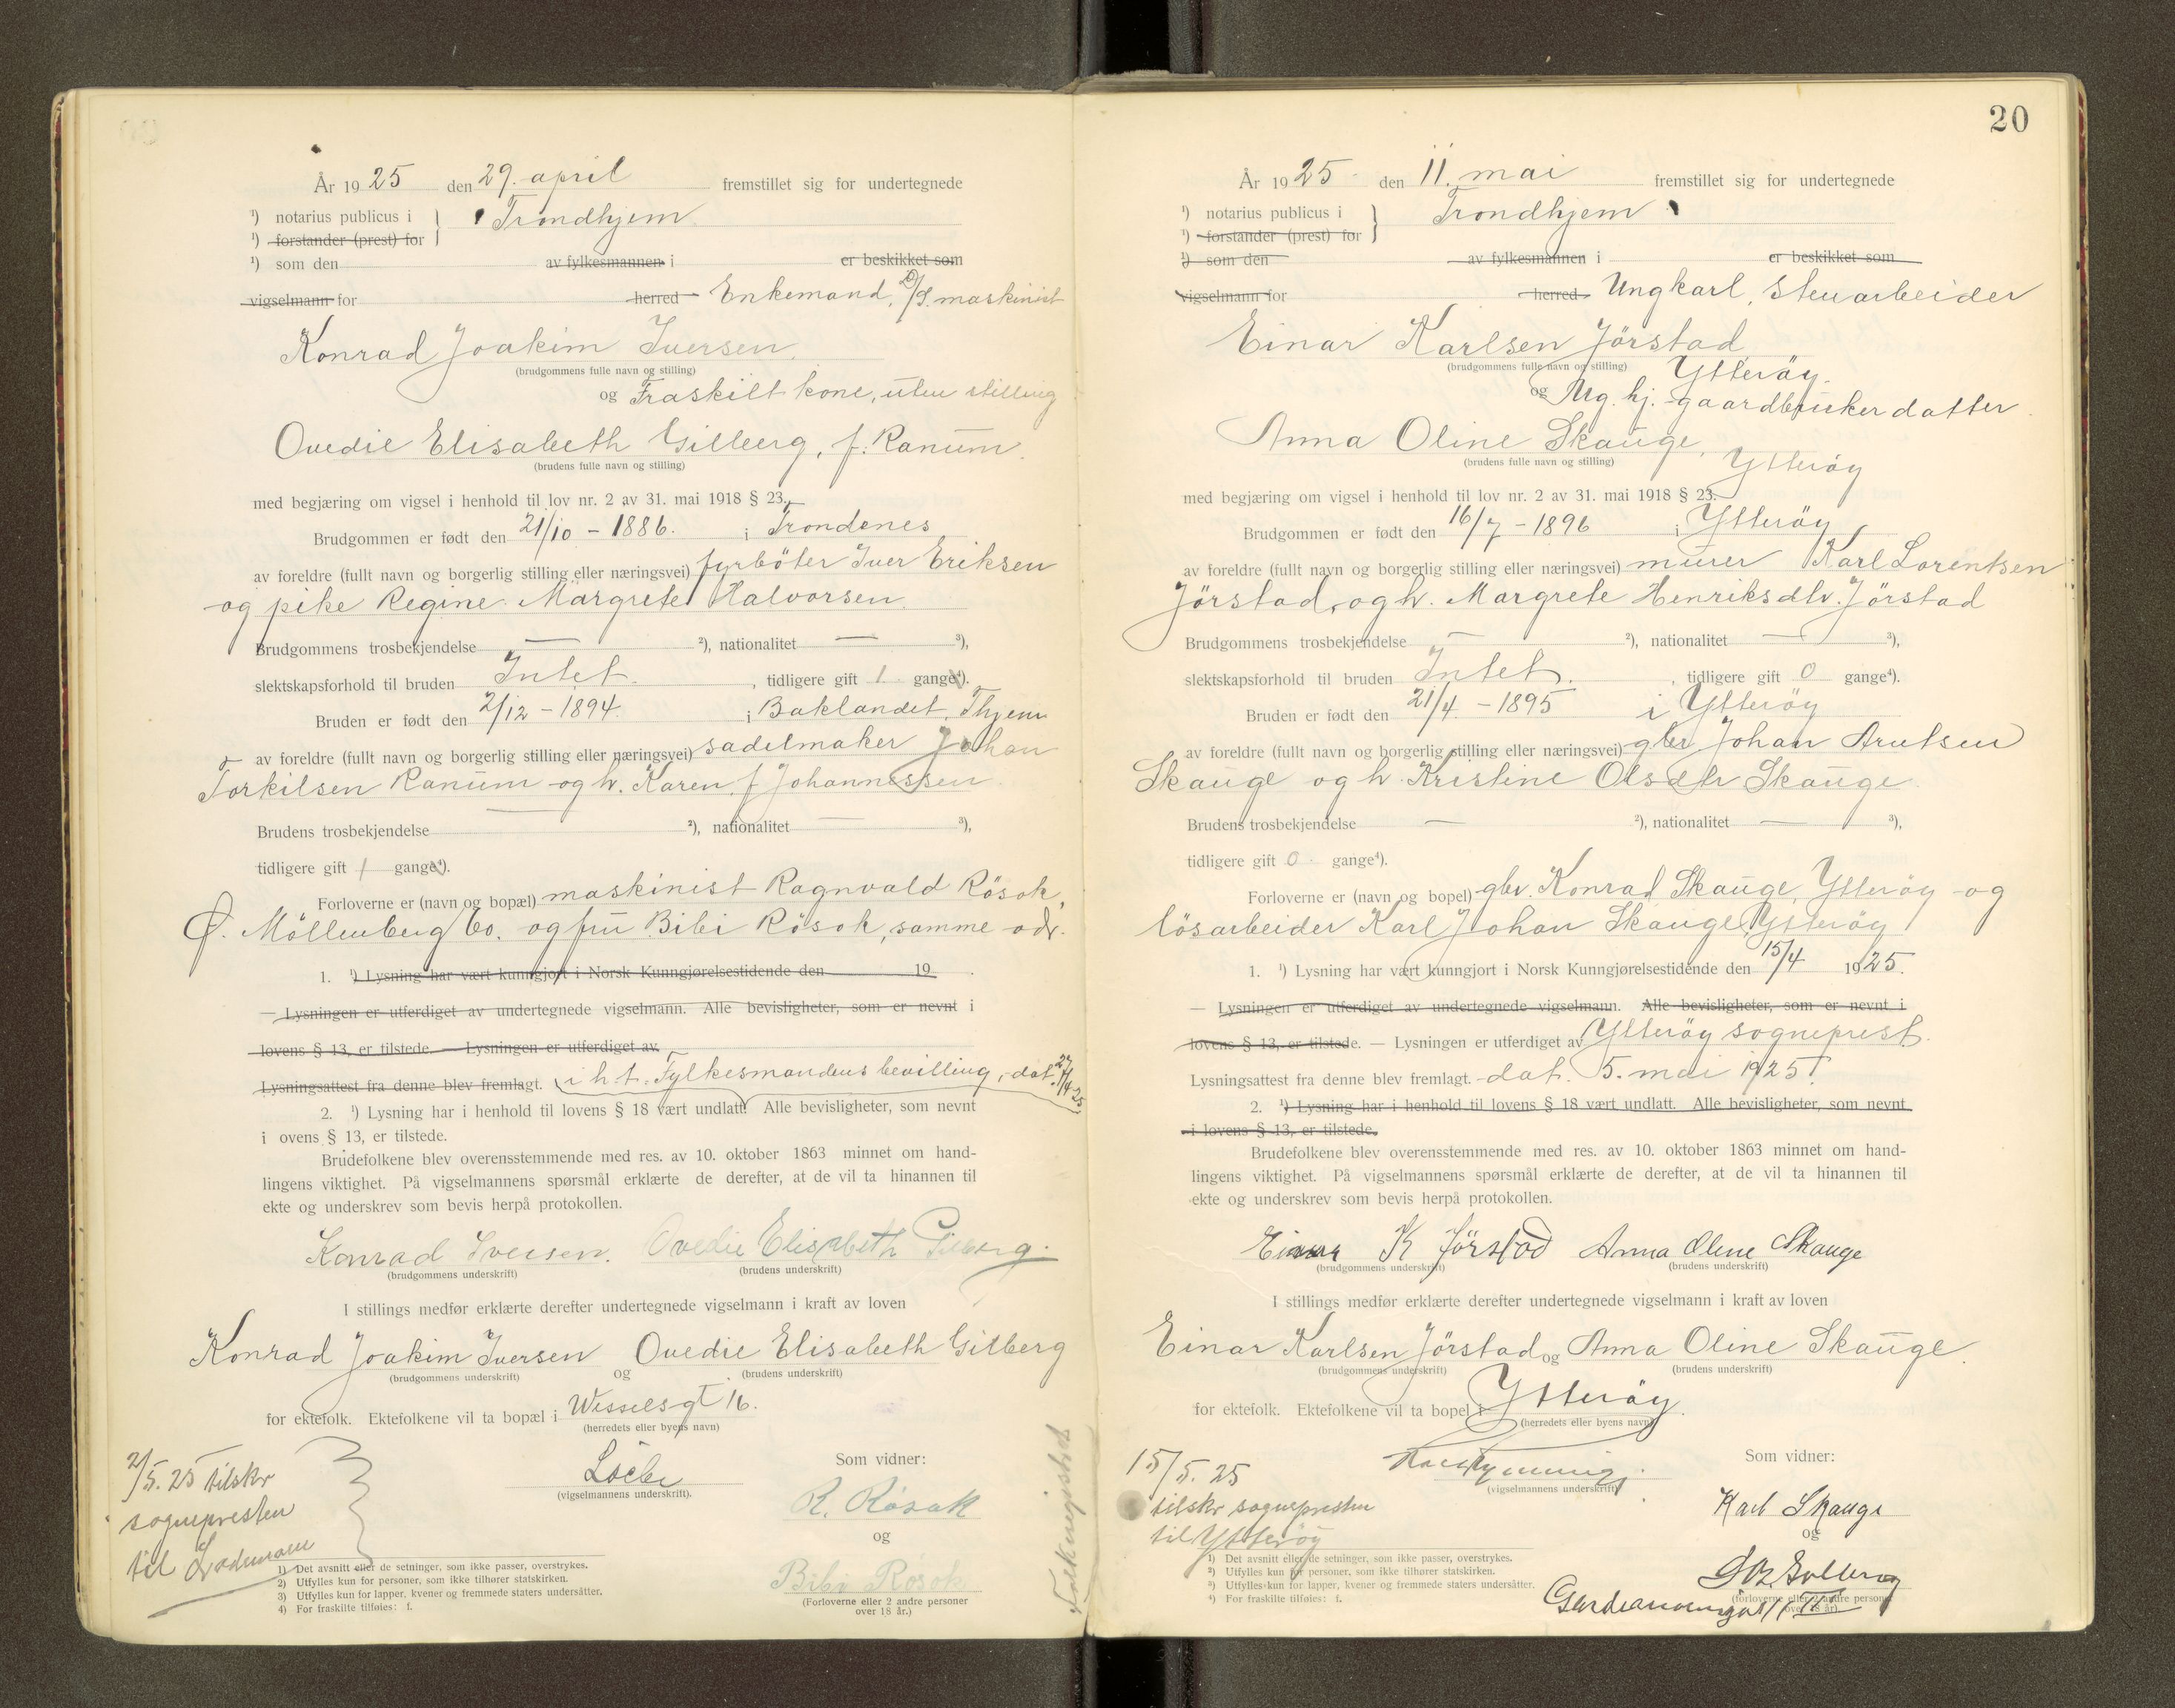 År 1925 den 29. april fremstillet sig for undertegnede
¹) notarius publicus i } Trondhjem
¹) forstander (prest) for
¹) som den av fylkesmannen i er beskikket som
vigselmann for herred Enkemand, D/S. maskinist
Konrad Joakim Iversen
(brudgommens fulle navn og stilling)
og Fraskilt kone, uten stilling
Ovedie Elisabeth Gilberg, f. Ranum.
(brudens fulle navn og stilling)
med begjæring om vigsel i henhold til lov nr. 2 av 31. mai 1918 § 23.
Brudgommen er født den 21/10 - 1886. i Trondenes
av foreldre (fullt navn og borgerlig stilling eller næringsvei) fyrböter Iver Eriksen
og pike Regine Margrete Halvorsen.
Brudgommens trosbekjendelse — ²), nationalitet — ³),
slektskapsforhold til bruden Intet. , tidligere gift 1 gange⁴).
Bruden er født den 2/12 - 1894. i Baklandet, Thjem
av foreldre (fullt navn og borgerlig stilling eller næringsvei) sadelmaker Johan
Torkilsen Ranum og h. Karen f Johannessen
Brudens trosbekjendelse — ²), nationalitet — ³),
tidligere gift 1 gange⁴).
Forloverne er (navn og bopæl) maskinist Ragnvald Rösok,
Ø. Möllenberg 60. og fru Bibi Rösok, samme adr.
1. ¹) Lysning har vært kunngjort i Norsk Kunngjørelsestidende den 19
— Lysningen er utferdiget av undertegnede vigselmann. Alle bevisligheter, som er nevnt i
lovens § 13, er tilstede. — Lysningen er utferdiget av
Lysningsattest fra denne blev fremlagt. i h. t. Fylkesmandens bevilling, dat. 27/4 25
2. ¹) Lysning har i henhold til lovens § 18 vært undlatt. Alle bevisligheter, som nevnt
i ovens § 13, er tilstede.
Brudefolkene blev overensstemmende med res. av 10. oktober 1863 minnet om hand-
lingens viktighet. På vigselmannens spørsmål erklærte de derefter, at de vil ta hinannen til
ekte og underskrev som bevis herpå protokollen.
Konrad Iversen. Ovedie Elisabeth Gilberg.
(brudgommens underskrift) (brudens underskrift)
I stillings medfør erklærte derefter undertegnede vigselmann i kraft av loven
Konrad Joakim Iversen og Ovedie Elisabeth Gilberg
(brudgommens underskrift) (brudens underskrift)
for ektefolk. Ektefolkene vil ta bopæl i Wesselsgt 16.
(herredets eller byens navn)
2/5. 25 tilskr
sognepresten
til Lademoen
(vigselmannens underskrift).
Som vidner:
R. Rösok
og
Bibi Rösok
(Forloverne eller 2 andre personer
over 18 år.)
Folkeregistret
1) Det avsnitt eller de setninger, som ikke passer, overstrykes.
2) Utfylles kun for personer, som ikke tilhører statskirken.
3) Utfylles kun for lapper, kvener og fremmede staters undersåtter.
4) For fraskilte tilføies: f.
20
År 1925 den 11. mai fremstillet sig for undertegnede
¹) notarius publicus i } Trondhjem
¹) forstander (prest) for
¹) som den av fylkesmannen i er beskikket som
vigselmann for herred Ungkarl, Stenarbeider
Einar Karlsen Jörstad
(brudgommens fulle navn og stilling) Ytteröy.
og Ung. hj. gaardbruker datter
Anna Oline Skauge,
(brudens fulle navn og stilling) Ytteröy
med begjæring om vigsel i henhold til lov nr. 2 av 31. mai 1918 § 23.
Brudgommen er født den 16/7 - 1896 i Ytteröy
av foreldre (fullt navn og borgerlig stilling eller næringsvei) murer Karl Lorentsen
Jörstad, og h. Margrete Henriksdtr. Jörstad
Brudgommens trosbekjendelse — ²), nationalitet — ³),
slektskapsforhold til bruden Intet. , tidligere gift 0 gange⁴).
Bruden er født den 21/4 - 1895 i Ytteröy
av foreldre (fullt navn og borgerlig stilling eller næringsvei) gbr Johan Arntsen
Skauge og h. Kristine Olsdtr Skauge.
Brudens trosbekjendelse — ²), nationalitet — ³),
tidligere gift 0 gange⁴).
Forloverne er (navn og bopel) gbr. Konrad Skauge, Ytteröy og
lösarbeider Karl Johan Skauge, Ytteröy
1. ¹) Lysning har vært kunngjort i Norsk Kunngjørelsestidende den 15/4 1925.
— Lysningen er utferdiget av undertegnede vigselmann. Alle bevisligheter, som er nevnt i
lovens § 13, er tilstede. — Lysningen er utferdiget av Ytteröy sogneprest.
Lysningsattest fra denne blev fremlagt. dat. 5. mai 1925.
2. ¹) Lysning har i henhold til lovens § 18 vært undlatt. Alle bevisligheter, som nevnt
i lovens § 13, er tilstede.
Brudefolkene blev overensstemmende med res. av 10. oktober 1863 minnet om hand-
lingens viktighet. På vigselmannens spørsmål erklærte de derefter, at de vil ta hinannen til
ekte og underskrev som bevis herpå protokollen.
Einar K Jörstad Anna Oline Skauge
(brudgommens underskrift) (brudens underskrift)
I stillings medfør erklærte derefter undertegnede vigselmann i kraft av loven
Einar Karlsen Jörstad og Anna Oline Skauge.
(brudgommens underskrift) (brudens underskrift)
for ektefolk. Ektefolkene vil ta bopel i Ytteröy.
(herredets eller byens navn)
15/5. 25
tilskr sognepresten
til Ytteröy
(vigselmannens underskrift)
Som vidner:
Karl Skauge
og
(forloverne eller 2 andre personer
over 18 år).
¹) Det avsnitt eller de setninger, som ikke passer, overstrykes.
²) Utfylles kun for personer, som ikke tilhører statskirken.
³) Utfylles kun for lapper, kvener og fremmede staters undersåtter.
⁴) For fraskilte tilføies: f.